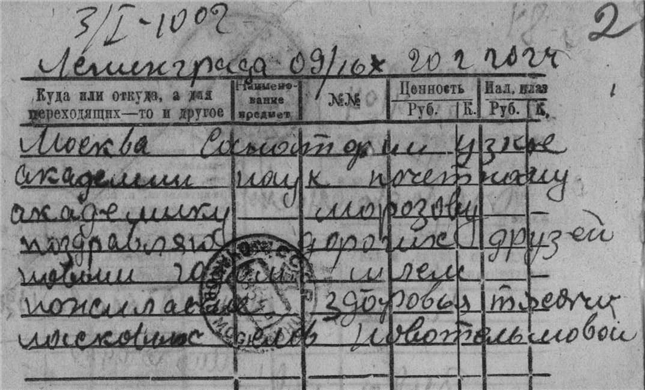 3/I-1002
2
Ленинграда 09/16х 20 2 2024
Куда или откуда, а для переходящих—то и другое
Наимено-вание предмет.
№№
Ценность
Руб. К.
Нал. плаз
Руб. К.
Москва Санатории узкое
академии наук почетному
академику морозову
поздравляю дорогих друзей
новым годом шлем
пожилания здоровья тысячи